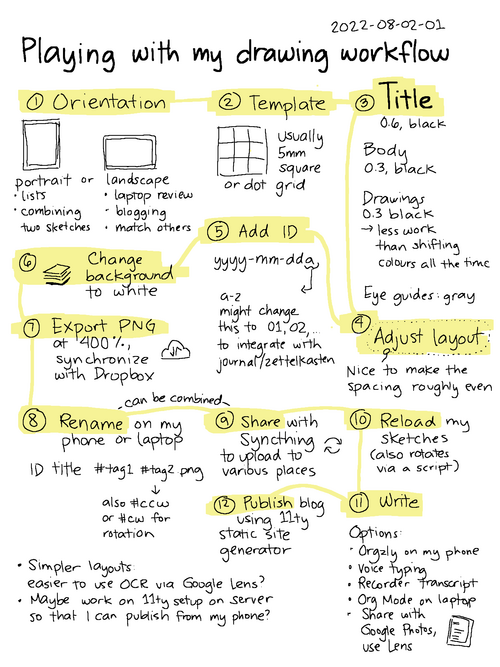 2022-08-02-01
Playing with my drawing workflow
① Orientation
portrait or
• lists
• combining
two sketches
landscape
• laptop review
- blogging
• match others
② Template
usually
5mm
square
or dot grid
③ Title
0.6, black
Body
0.3, black
Drawings
0.3 black
→ less work
than shifting
colours all the time
Eye guides: gray
④ Adjust layout
Nice to make the
spacing roughly even
⑤ Add ID
yyyy-mm-dda
a-z
might change
this to 01, 02, ...
to integrate with
journal/zettelkasten
⑥ Change
background
to white
⑦ Export PNG
at 400%,
synchronize
with Dropbox
can be combined
⑧ Rename on my
phone or laptop
ID title #tag1 #tag2.png
↓
also #ccw
or #cw for
rotation
⑨ Share with
Syncthing
to upload to
various places
⑩ Reload my
sketches
(also rotates
via a script)
⑪ Write
Options:
• Orgzly on my phone
• Voice typing
• Recorder transcript
• Org Mode on laptop
• Share with
Google Photos,
use Lens
⑫ Publish blog
using 11ty
static site
generator
• Simpler layouts:
easier to use OCR via Google Lens?
• Maybe work on 11ty setup on server
so that I can publish from my phone?